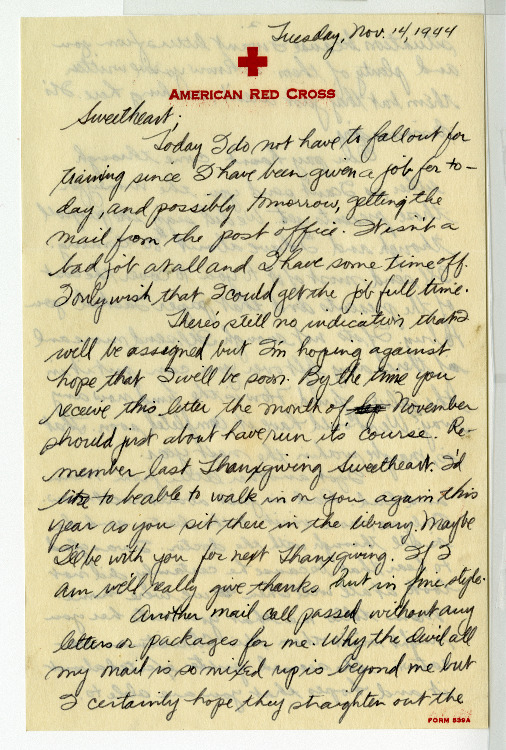 Tuesday, Nov. 14, 1944
AMERICAN RED CROSS
Sweetheart;
Today I do not have to fall out for
training since I have been given a job for to-
day, and possibly tomorrow, getting the
mail from the post office. It isn't a
bad job at all and I have some time off.
I only wish that I could get the job full time.
There's still no indication that I
will be assigned but I'm hoping against
hope that I will be soon. By the time you
receive this letter the month of November
should just about have run its course. Re-
member last Thanxgiving Sweetheart. I'd
like to be able to walk in on you again this
year as you sit there in the library. Maybe
I'll be with you for next Thanxgiving. If I
am we'll really give thanks but in fine style.
Another mail call passed without any
letters or packages for me. Why the devil all
my mail is so mixed up is beyond me but
I certainly hope they straighten out the
FORM 539A